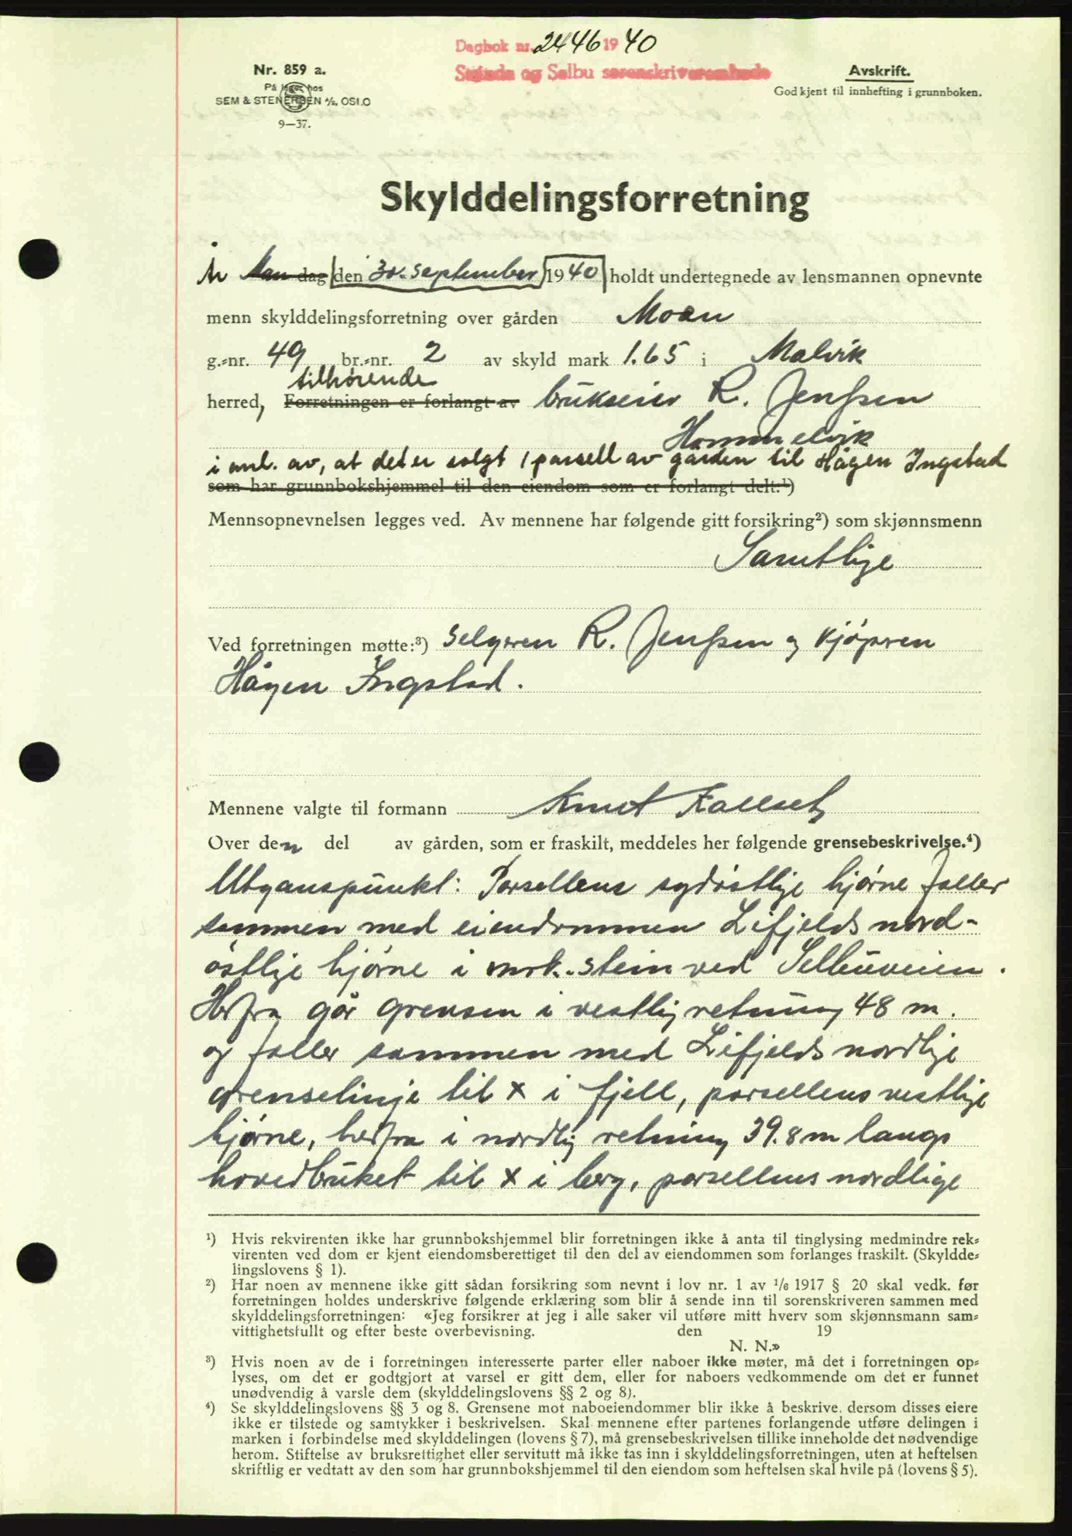 Dagbok nr. 2446 1940
Strinda og Selbu sorenskriverembede
Nr. 859 a.
På lager hos
SEM & STENERSEN A/S, OSLO
9—37.
Avskrift.
Godkjent til innhefting i grunnboken.
Skylddelingsforretning
År Mandag den 30. september 1940 holdt undertegnede av lensmannen opnevnte
menn skylddelingsforretning over gården Moan
g.-nr. 49 br.-nr. 2 av skyld mark 1.65 i Malvik
tilhørende
herred, Forretningen er forlangt av brukseier R. Jenssen
Hommelvik
i anl. av, at det er solgt 1 parsell av gården til Hågen Ingstad
som har grunnbokshjemmel til den eiendom som er forlangt delt.¹)
Mennsopnevnelsen legges ved. Av mennene har følgende gitt forsikring²) som skjønnsmenn
Samtlige
Ved forretningen møtte:³) Selgeren R. Jenssen og kjøperen
Hågen Ingstad.
Mennene valgte til formann Knut
Over den del av gården, som er fraskilt, meddeles her følgende grensebeskrivelse.⁴)
Utganspunkt: Parsellens sydøstlige hjørne faller
sammen med eiendommen Lifjelds nord-
østlige hjørne i mrk. stein ved Selbuveien.
Herfra går grensen i vestlig retning 48 m.
og faller sammen med Lifjelds nordlige
grenselinje til x i fjell, parsellens vestlige
hjørne, herfra i nordlig retning 39.8 m langs
hovedbruket til x i berg, parsellens nordlige
¹) Hvis rekvirenten ikke har grunnbokshjemmel blir forretningen ikke å anta til tinglysing medmindre rek-
virenten ved dom er kjent eiendomsberettiget til den del av eiendommen som forlanges fraskilt. (Skyldde-
lingslovens § 1).
²) Har noen av mennene ikke gitt sådan forsikring som nevnt i lov nr. 1 av 1/6 1917 § 20 skal vedk. før
forretningen holdes underskrive følgende erklæring som blir å sende inn til sorenskriveren sammen med
skylddelingsforretningen: «Jeg forsikrer at jeg i alle saker vil utføre mitt hverv som skjønnsmann sam-
vittighetsfullt og efter beste overbevisning. den 19
N. N.»
³) Hvis noen av de i forretningen interesserte parter eller naboer ikke møter, må det i forretningen op-
lyses, om det er godtgjort at varsel er gitt dem, eller for naboers vedkommende om det er funnet
unødvendig å varsle dem (skylddelingslovens §§ 2 og 8).
⁴) Se skylddelingslovens §§ 3 og 8. Grensene mot naboeiendommer blir ikke å beskrive, dersom disses eiere
ikke er tilstede og samtykker i beskrivelsen. Skal mennene efter partenes forlangende utføre delingen i
marken i forbindelse med skylddelingen (lovens § 7), må grensebeskrivelsen tillike inneholde det nødvendige
herom. Stiftelse av bruksrettighet eller servitutt må ikke tas inn i skylddelingsforretningen, uten at heftelsen
skriftlig er vedtatt av den som har grunnbokshjemmel til den eiendom som heftelsen skal hvile på (lovens § 5).